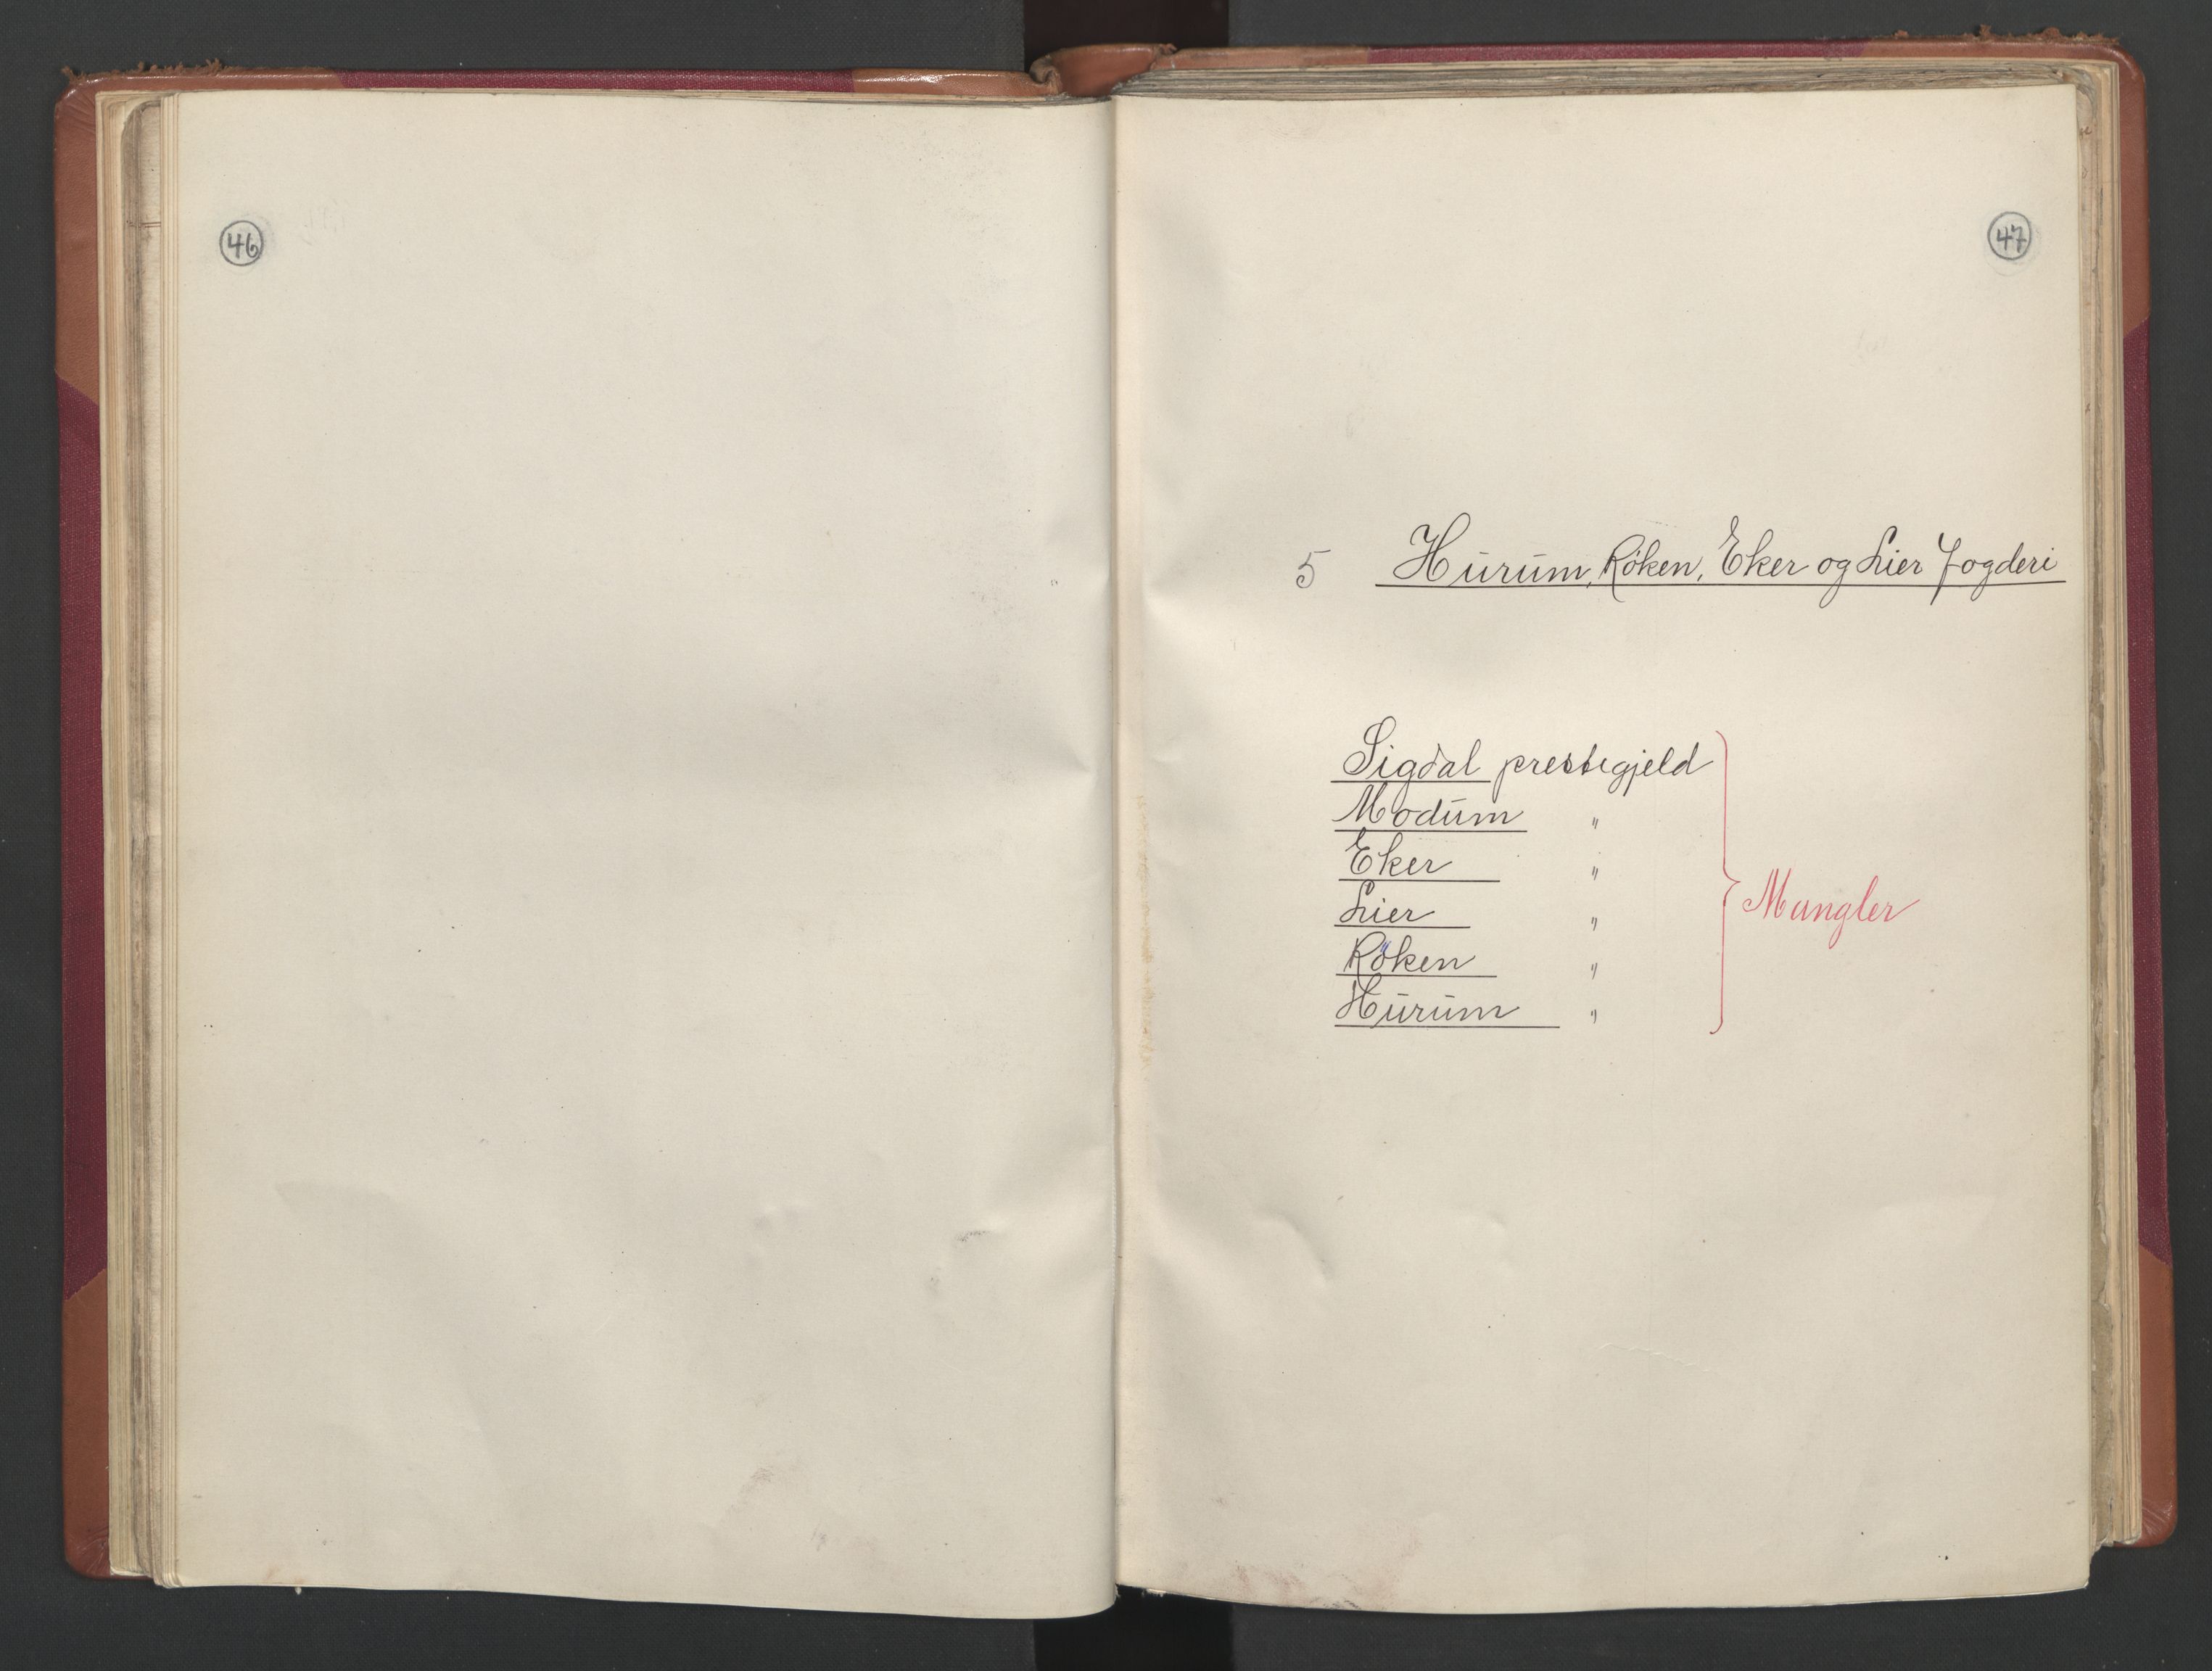 46
47
5 Hurum, Røken, Eker og Lier Fogderi
Sigdal prestegjeld
Modum "
Eker "
Lier "
Røken "
Hurum "
Mangler